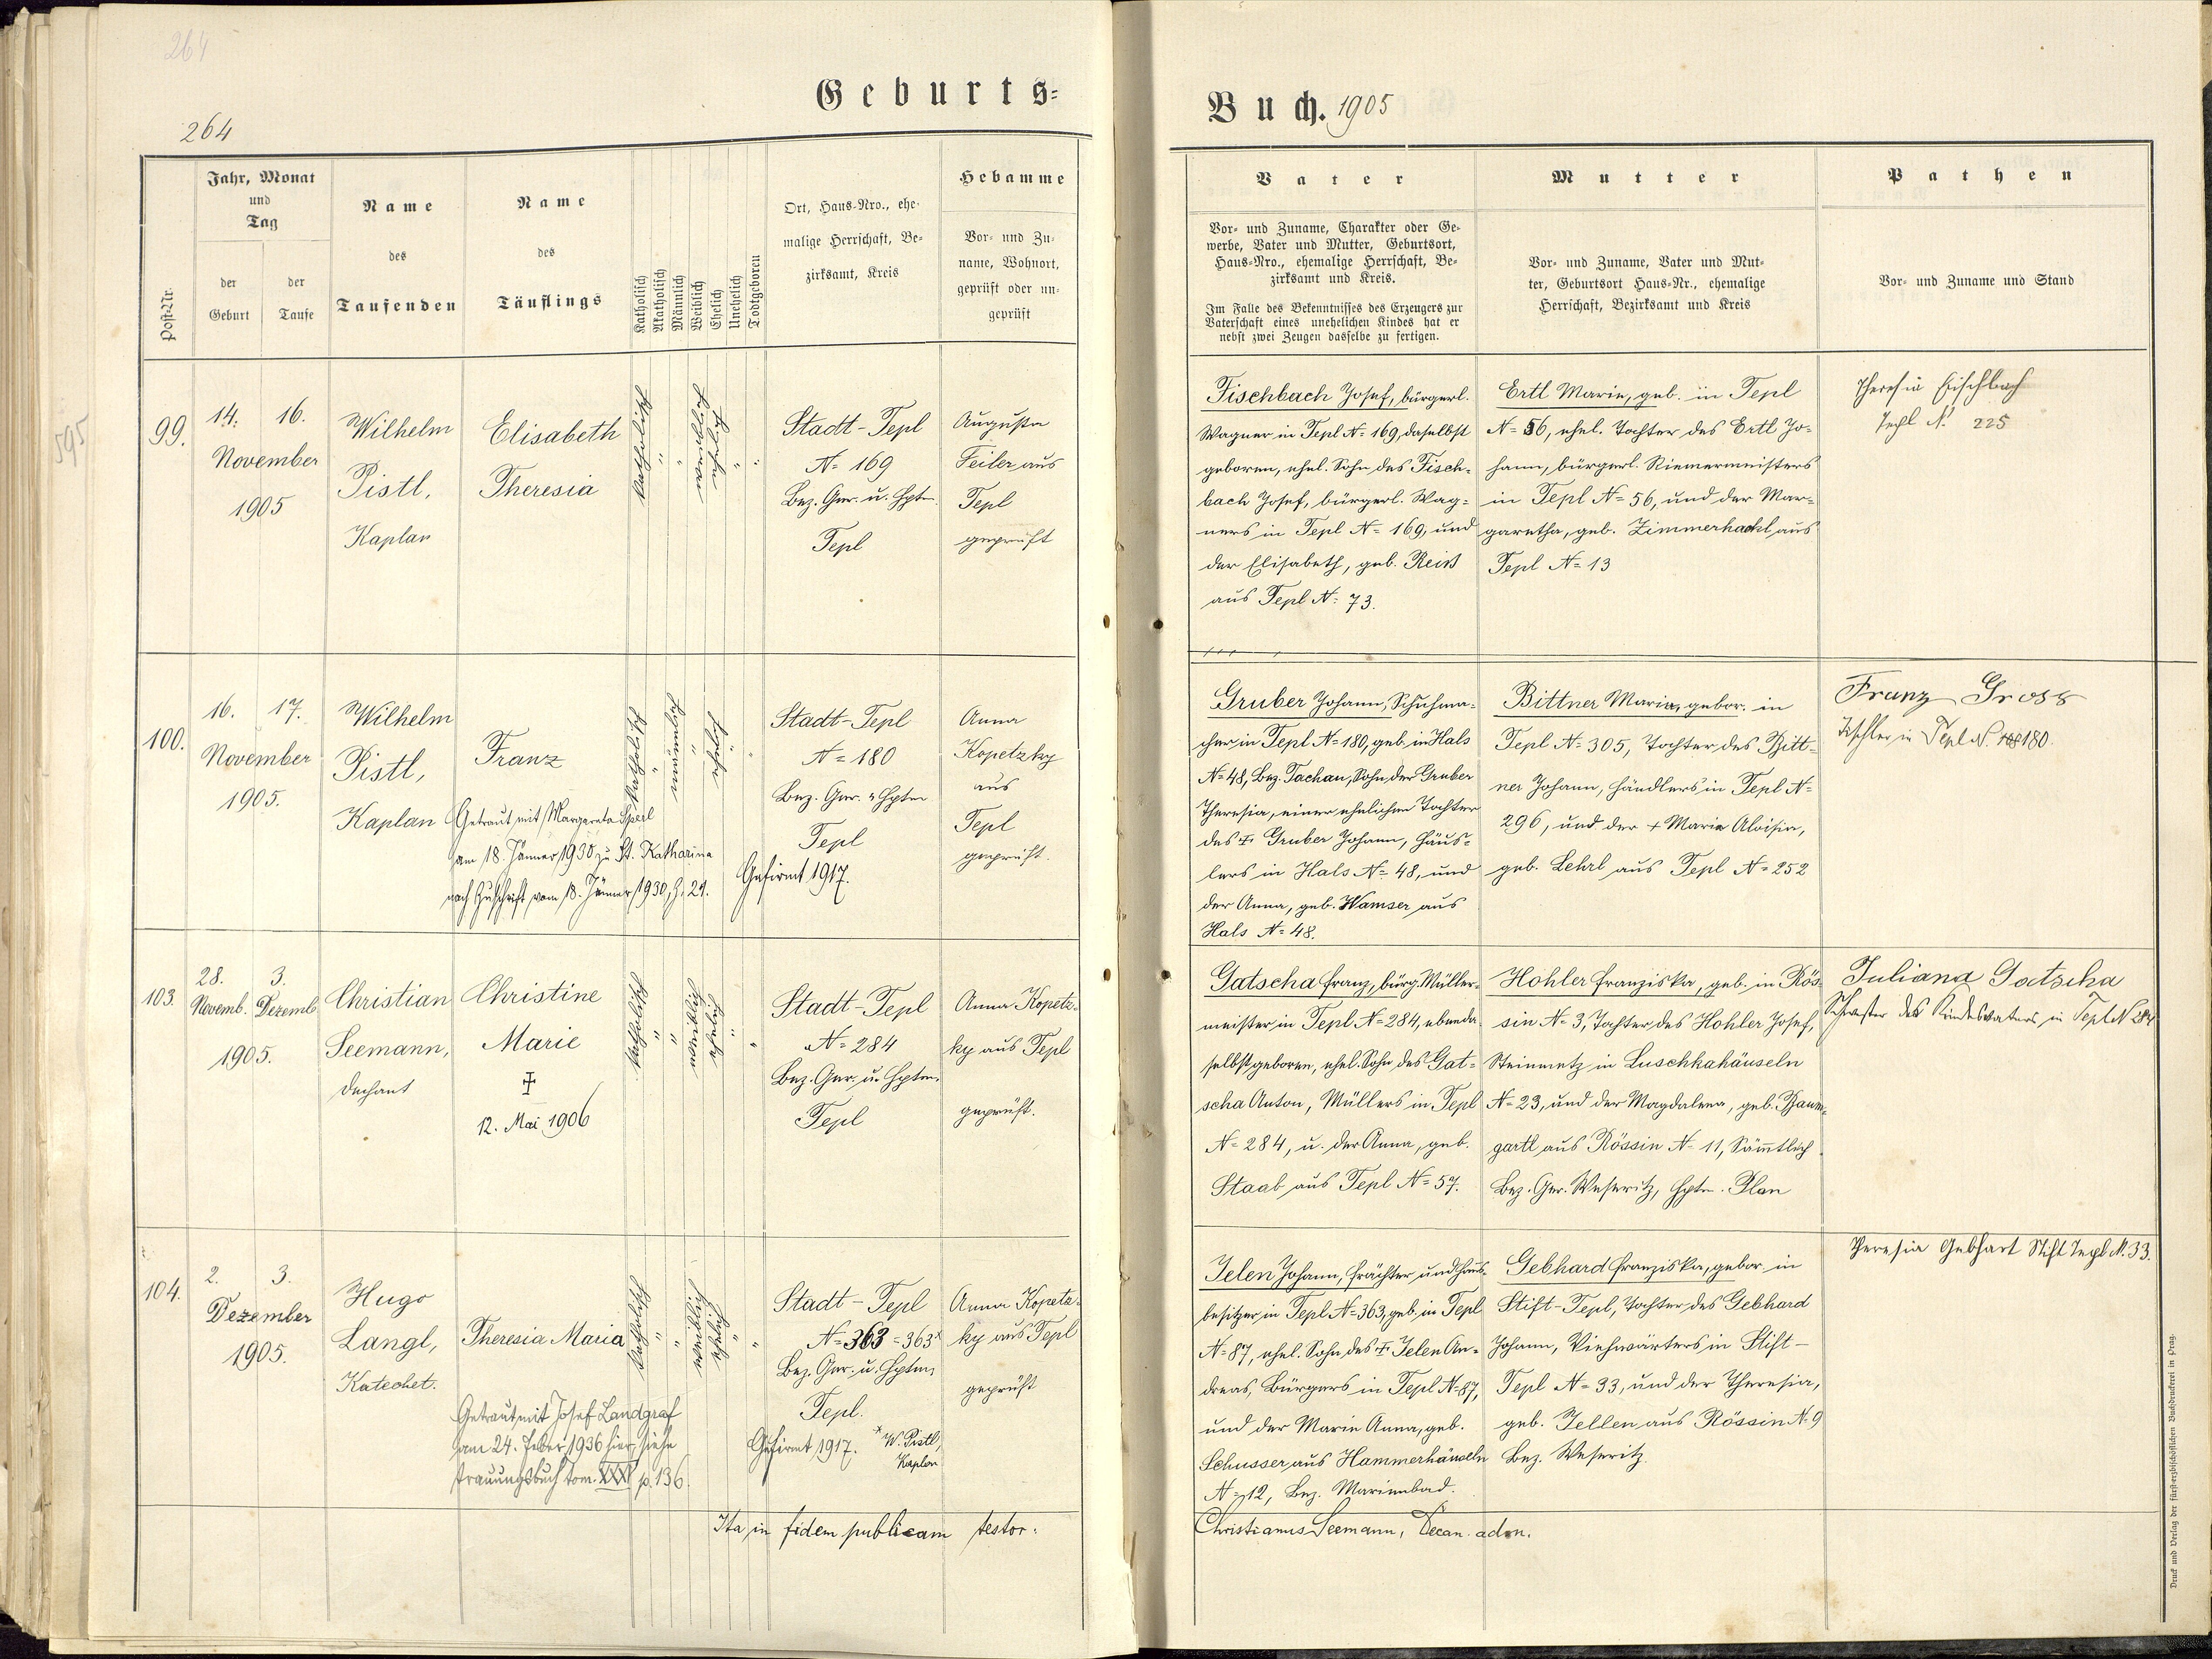 264
264
Geburts-
Jahr, Monat
und
Tag
Post-Nr.
der
Geburt
der
Taufe
Name
des
Taufenden
Name
des
Täuflings
Katholisch
Akatholisch
Männlich
Weiblich
Ehelich
Unehelich
Todtgeboren
Ort, Haus-Nro., ehe-
malige Herrschaft, Be-
zirksamt, Kreis
Hebamme
Vor- und Zu-
name, Wohnort,
geprüft oder un-
geprüft
595
99.
14. 16.
November
1905
Wilhelm
Pistl,
Kaplan
Elisabeth
Theresia
katholisch
"
"
weiblich
ehelich
"
"
Stadt-Tepl
N= 169
Bez. Ger. u. Hptm.
Tepl
Augusta
Feiler aus
Tepl
geprüft
100.
16. 17.
November
1905.
Wilhelm
Pistl,
Kaplan
Franz
Getraut mit Margareta Sperl
am 18. Jänner 1930 zu St. Katharina
nach Zuschrift vom 18. Jänner 1930, Z. 21.
katholisch
"
männlich
"
ehelich
"
Stadt-Tepl
N= 180
Bez. Ger. u Hptm
Tepl
Gefirmt 1917.
Anna
Kopetzky
aus
Tepl
geprüft.
103.
28. 3.
Novemb. Dezemb.
1905.
Christian
Seemann,
Dechant
Christine
Marie
✝
12. Mai 1906
katholisch
"
"
weiblich
ehelich
"
"
Stadt-Tepl
N= 284
Bez. Ger. u. Hptm.
Tepl
Anna Kopetz-
ky aus Tepl
geprüft.
104.
2. 3.
Dezember
1905.
Hugo
Langl,
Katechet.
Theresia Maria
Getraut mit Josef Landgraf
am 24. Feber 1936 hier, siehe
Trauungsbuch tom. XXI p. 136.
katholisch
"
"
weiblich
ehelich
"
"
Stadt-Tepl
N= 363 = 363*
Bez. Ger. u. Hptm.
Tepl.
Gefirmt 1917.
* W. Pistl,
Kaplan
Anna Kopetz-
ky aus Tepl
geprüft
Ita in fidem publicam testor:
Buch. 1905
Vater
Vor- und Zuname, Charakter oder Ge-
werbe, Vater und Mutter, Geburtsort,
Haus-Nro., ehemalige Herrschaft, Be-
zirksamt und Kreis.
Im Falle des Bekenntnisses des Erzeugers zur
Vaterschaft eines unehelichen Kindes hat er
nebst zwei Zeugen dasselbe zu fertigen.
Mutter
Vor- und Zuname, Vater und Mut-
ter, Geburtsort Haus-Nr., ehemalige
Herrschaft, Bezirksamt und Kreis
Pathen
Vor- und Zuname und Stand
Fischbach Josef, bürgerl.
Wagner in Tepl N= 169, daselbst
geboren, ehel. Sohn des Fisch-
bach Josef, bürgerl. Wag-
ners in Tepl N= 169, und
der Elisabeth, geb. Reiß
aus Tepl N= 73.
Ertl Marie, geb. in Tepl
N= 56, ehel. Tochter des Ertl Jo-
hann, bürgerl. Riemermeisters
in Tepl N= 56, und der Mar-
garetha, geb. Zimmerhackl aus
Tepl N= 13
Theresia Fischbach
Tepl N= 225
Gruber Johann, Schuhma-
cher in Tepl N= 180, geb. in Hals
N= 48, Bez. Tachau, Sohn der Gruber
Theresia, einer ehelichen Tochter
des ✝ Gruber Johann, Häus-
lers in Hals N= 48, und
der Anna, geb. Wamser aus
Hals N= 48.
Bittner Maria, gebor. in
Tepl N= 305, Tochter des Bitt-
ner Johann, Händlers in Tepl N=
296, und der + Marie Aloisia,
geb. Lehrl aus Tepl N= 252
Franz Gross
Tischler in Tepl N. 180.
Gatscha Franz, bürg. Müller-
meister in Tepl N= 284, ebenda-
selbst geboren, ehel. Sohn des Gat-
scha Anton, Müllers in Tepl
N= 284, u. der Anna, geb.
Staab aus Tepl N= 57.
Hohler Franziska, geb. in Rös-
sin N= 3, Tochter des Hohler Josef,
Steinmetz in Luschkahäuseln
N= 23, und der Magdalena, geb. Baum-
gartl aus Rössin N= 11, Sämtlich
Bez. Ger. Weseritz, Hptm. Plan
Juliana Gatscha
Schwester des Kindesvaters in Tepl N 284
Jelen Johann, Frächter und Haus-
besitzer in Tepl N= 363, geb. in Tepl
N= 87, ehel. Sohn des ✝ Jelen An-
dreas, Bürgers in Tepl N= 87,
und der Marie Anna, geb.
Schusser aus Hammerhäuseln
N= 12, Bez. Marienbad.
Gebhard Franziska, gebor. in
Stift-Tepl, Tochter des Gebhard
Johann, Viehwärters in Stift-
Tepl N= 33, und der Theresia,
geb. Jellen aus Rössin N= 9
Bez. Weseritz.
Theresia Gebhart Stift Tepl N. 33.
Christianus Seemann, Decan. adm.
Druck und Verlag der fürsterzbischöflichen Buchdruckerei in Prag.